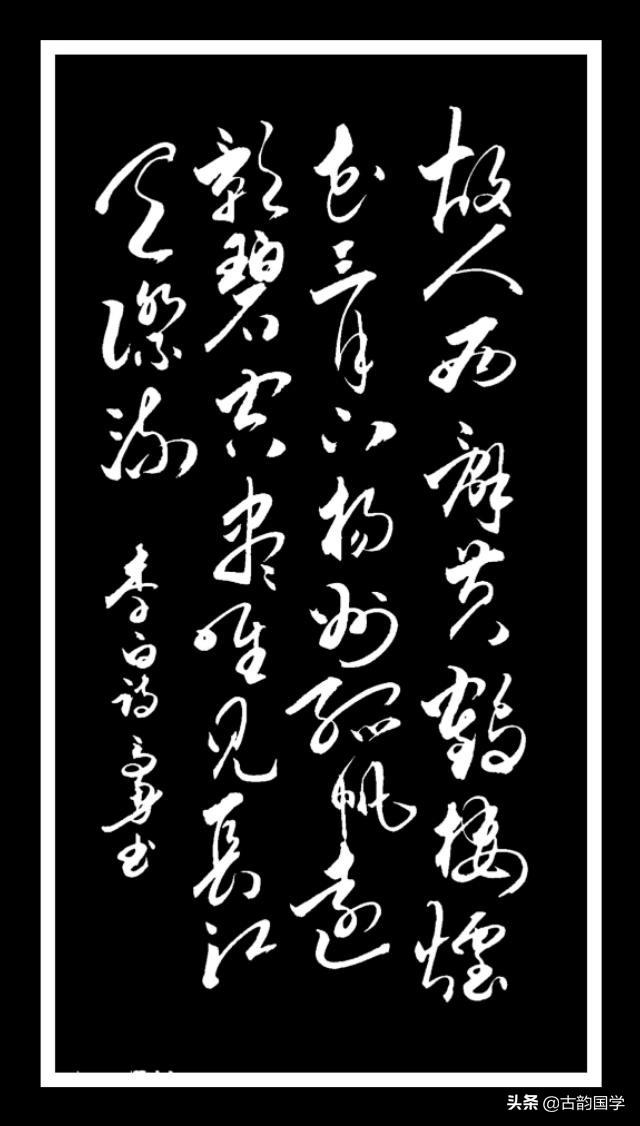 故人西辞黄鹤楼煙
花三月下揚州孤帆遠
影碧空尽唯见長江
天際流
李白詩 書
头条 @古韵国学